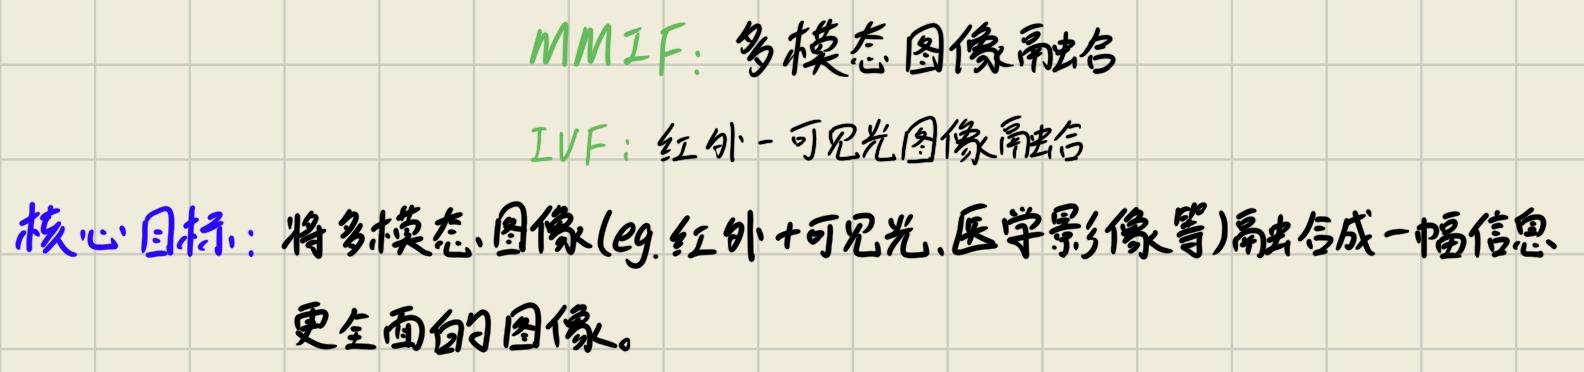 MMIF: 多模态图像融合
IVF: 红外-可见光图像融合
核心目标: 将多模态图像(eg.红外+可见光、医学影像等)融合成一幅信息
更全面的图像。